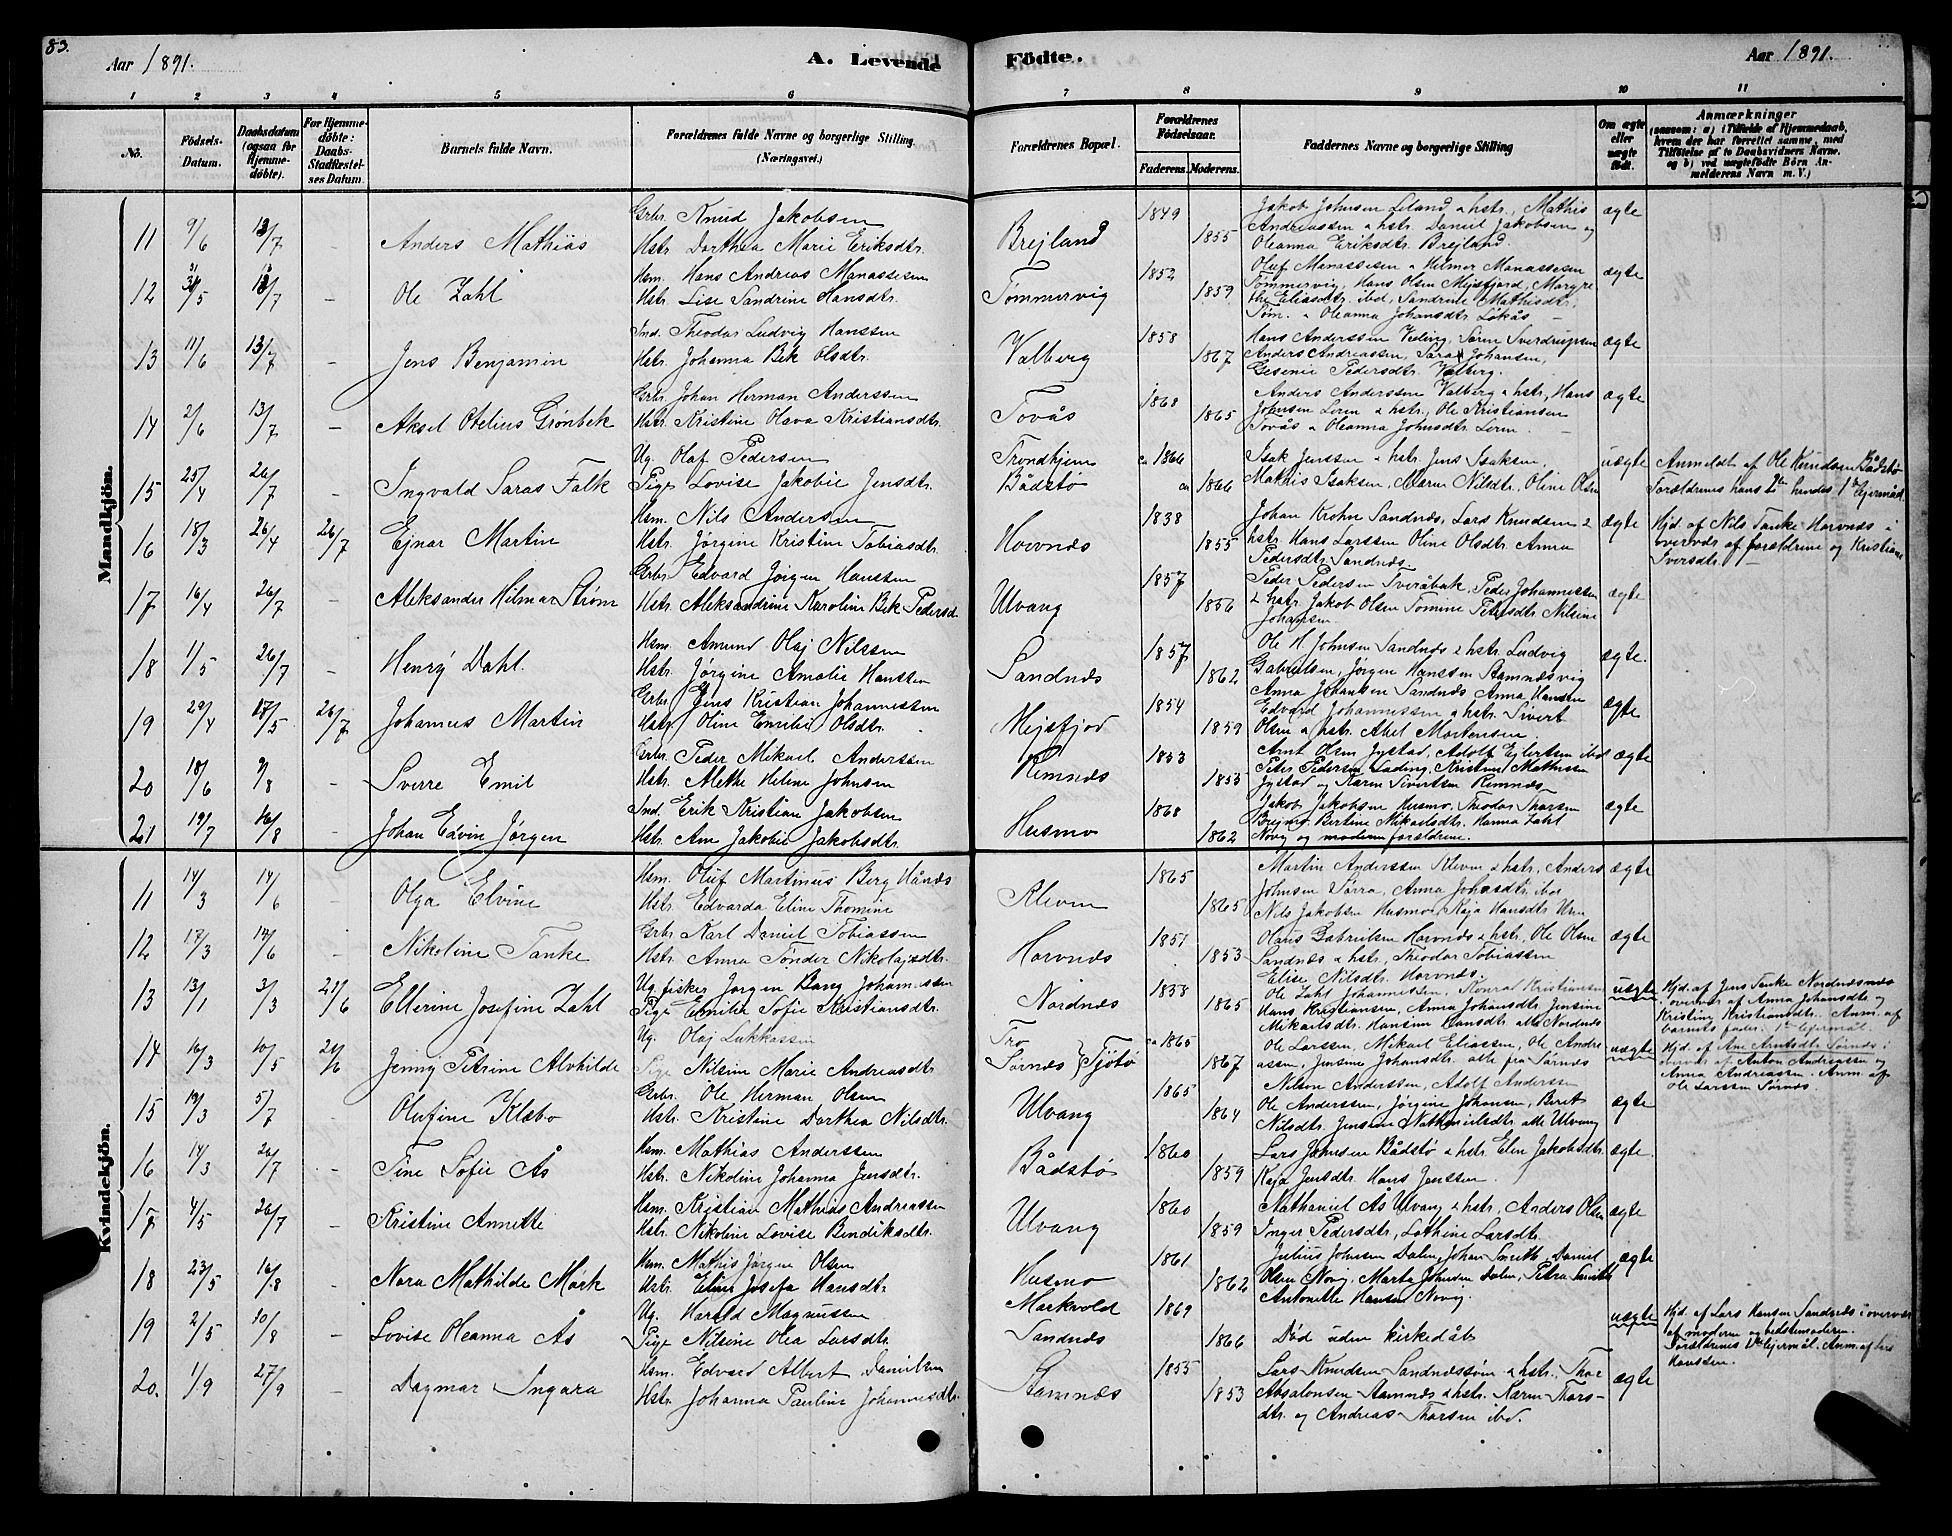 83.
Aar 1891.
A. Levende
Fødte.
Aar 1891.
1 2 3 4 5 6 7 8 9 10 11
No.
Fødsels-
Datum.
Daabsdatum
(ogsaa for
Hjemme-
döbte).
For Hjemme-
döbte:
Daabs-
Stadfæstel-
ses Datum.
Barnets fulde Navn.
Forældrenes fulde Navne og borgerlige Stilling.
(Næringsvei.)
Forældrenes Bopæl.
Forældrenes
Födselsaar.
Faderens. Moderens.
Faddernes Navne og borgerlige Stilling
Om ægte
eller
uægte
födt.
Anmærkninger
(saasom: a) i Tilfælde af Hjemmedaab,
hvem der har forrettet samme, med
Tilföielse af to Daabsvidners Navne,
og b) ved uægtefödte Börn An-
melderens Navn m. V.)
Mandkjön.
11 9/6 13/7 Anders Mathias
Grbr. Knud Jakobsen
Hstr. Dorthea Marie Eriksdtr.
Brejland 1849 1855
Jakob Johnsen Leland & hstr., Mathis
Andreassen & hstr. Daniel Jakobsen og
Oleanna Eriksdtr. Brejland.
ægte
12 31/5 13/7 - Ole Zahl
Hsm. Hans Andreas Manassesen
Hstr. Lise Sandrine Hansdtr.
Tømmervig 1852 1859
Oluf Manassesen & Hilmer Manassesen
Tømmervig, Hans Olsen Mejsfjord, Margre
the Eliasdtr. ibd, Sandrine Mathisdtr.
Tøm. & Oleanna Johansdtr Løkås -
ægte
13 11/6 13/7 - Jens Benjamin
Ind. Theodor Ludvig Hanssen
Hstr. Johanna Bek Olsdtr.
Valberg 1858 1867
Hans Anderssen Søren Sverdrupsen
Anders Andreassen, Sara Johansen,
Gesenie Pedersdtr. Valberg.
ægte
14 2/6 13/7 - Aksel Otelius Grønbek
Grbr. Johan Herman Anderssen
Hstr. Kristine Olava Kristiansdtr.
Tovås 1868 1865
Anders Anderssen Valberg & hstr, Hans
Johnsen Leren & hstr., Ole Kristiansen
Tovås & Oleanna Johnsdtr. Leren -
ægte
15 25/4 26/7 - Ingvald Saras Falk
Ug. Olaf Pedersen
Pige Lovise Jakobie Jensdtr.
Trondhjem
Bådstø ca 1866 ca 1866
Isak Jenssen & hstr Jens Isaksen,
Mathis Isaksen, Maren Nilsdtr., Oline Olsen
uægte
Anmeldt af Ole Knudsen Bådstø
Forældrenes hans 2te hendes 1te lejermål.
16 18/3 26/4 26/7 Ejnar Martin
Hsm. Nils Andersen
Hstr. Jørgine Kristine Tobiasdtr.
Hovnæs 1838 1855
Johan Krohn Sandnæs, Lars Knudsen &
hstr Hans Larssen Oline Olsdtr. Anna
Pedersdtr. Sandnæs.
ægte
Hjd. af Nils Tanke Horvnæs i
overvær af forældrene og Kristiane
Iversdtr. -
17 16/4 26/7 - Aleksander Hilmar Strøm
Grbr. Edvard Jørgen Hanssen
Hstr. Aleksandrine Karoline Bek Pedersd
Ulvang 1857 1856
Peder Pedersen Sveråbak, Peder Johannessen
& hstr. Jakob Olsen Tomine Petersdtr Nilsine
Johansen.
ægte
18 1/5 26/7 - Henry Dahl.
Hsm. Amund Olaj Nilssen
Hstr. Jørgine Amalie Hanssen
Sandnæs 1857 1862
Ole H. Johnsen Sandnæs & hstr. Ludvig
Gabrielsen, Jørgen Hanssen Stamnæsvig
Anna Johansen Sandnæs Anna Hansen
ægte.
19 29/4 17/5 26/7 Johannes Martin
Grbr. Jens Kristian Johannessen
Hstr. Oline Emilie Olsdtr.
Mejsfjord 1854 1859
Edvard Johannessen & hstr. Sivert
Olsen & hstr. Abel Mortensen.
ægte
20 18/6 9/8 - Sverre Emil
Grbr. Peder Mikael Anderssen
Hstr. Alethe Helene Johnsen
Remnæs 1853 1853
Arnt Olsen Jystad, Adolf Ejlertsen ibd
Peter Pedersen Lading, Kristine Mathissen
Jystad og Karen Sivertsen Remnæs
ægte
21 19/7 16/8 - Johan Edvin Jørgen
Ind. Erik Kristian Jakobsen
Hstr. Ane Jakobie Jakobsdtr.
Husmo 1868 1862
Jakob Jakobsen Husmo, Theodor Thorsen
Brejmo, Bertine Mikaelsdtr. Hanna Zahl
Novig og moderen forældrene.
ægte
Kvindekjön.
11 14/3 14/6 - Olga Elvine
Hsm. Oluf Martinus Berg Hånæs
Hstr. Edvarda Eline Thomine
Kleven 1865 1865
Martin Anderssen Kleven & hstr., Anders
Johnsen Sørra, Anna Johnsdtr. ibd
Nils Jakobsen Husmo, Kaja Hansdtr
ægte
12 17/3 14/6 - Nikoline Tanke
Grbr. Karl Daniel Tobiassen
Hstr. Anna Tønder Nikolajsdtr.
Horvnæs 1851 1853
Hans Gabrielsen Horvnæs & hstr, Ole Olsen
Sandnæs & hstr, Theodor Tobiassen
Elise Nilsdtr. Horvnæs.
ægte
13 13/1 3/3 21/6 Ellerine Josefine Zahl
Ug. fisker Jørgen Bang Johannessen
Pige Emilie Sofie Kristiansdtr.
Nordnæs 1858 1865
Ole Zahl Johannessen, Konrad Kristiansen
Hans Kristiansen, Anna Johansdtr. Jensine
Mikaelsdtr. Hansine Hansdtr. alle Nordnæs
uægte
Hjd. af Jens Tanke Nordnæsnæs
i overvær af Anna Johansdtr og
Kristine Kristiansdtr. Anm. af
barnets fader. 1te lejermål.
14 16/3 10/5 21/6 Jenny Petrine Alvhilde
Ug. Olaj Lukkassen
Pige Nilsine Marie Andreasdtr.
Tro
Sørnæs } Tjøtø ca 1865 1867
Ole Larssen, Mikael Eliassen, Ole Andre
assen, Jensine Johansdtr. alle fra Sørnæs
uægte
Hjd. af Ane Arntsdtr. Sørnæs i
overvær af Anton Andreassen og
Anna Andreassen. Anm. af
Ole Larssen Sørnæs.
15 19/3 5/7 Olufine Klæbo
Grbr. Ole Herman Olsen
Hstr. Kristine Dorthea Nilsdtr.
Ulvang 1865 1864
Nilson Anderssen, Adolf Anderssen
Ole Anderssen, Jørgine Johansen, Beret
Nilsdtr. Jensine Nathanielsdtr alle Ulvang
ægte
16 14/3 26/7 - Tine Sofie Ås
Hsm. Mathias Anderssen
Hstr. Nikoline Johanna Jensdtr.
Bådstø 1860 1859
Lars Johnsen Bådstø & hstr Elen Jakobsdtr.
Kaja Jensdtr. Hans Jenssen.
ægte.
17 4/5 26/7 - Kristine Annette
Hsm. Kristian Mathias Andreassen
Hstr. Nikoline Lovise Bendiksdtr.
Ulvang 1860 1859
Nathaniel Ås Ulvang & hstr, Anders Olsen
Inger Pedersdtr, Lothine Larsdtr.
ægte
18 23/5 16/8 - Nora Mathilde Mørk
Hsm. Mathis Jørgen Olsen
Hstr. Eline Josefa Hansdtr
Husmo 1861 1862
Julius Johnsen Dalen, Johan Smith, Daniel
Olsen Novig, Marta Johnsen Dalen, Petra Smith
Antonette Hansen Novig.
ægte
19 2/5 30/8 - Lovise Oleanna Ås
Ug. Harald Magnussen
Pige Nilsine Olea Larsdtr.
Markvold
Sandnæs 1869 1866
Død uden kirkedåb
uægte
Hjd. af Lars Hansen Sandnæs i overvær
af moderen og bedstemoderen.
Forældrenes 1te lejermål. Anm. af Lars
Hanssen.
20. 1/9 27/9 - Dagmar Ingara
Hsm. Edvard Albert Danielsen
Hstr. Johanna Pauline Johannesdtr.
Stamnæs 1855 1853
Lars Knudsen Sandnæssøen & hstr. Thor
Absalonsen Stamnæs & hstr. Karen Thors-
dtr. og Andreas Thorsen ibd.
ægte